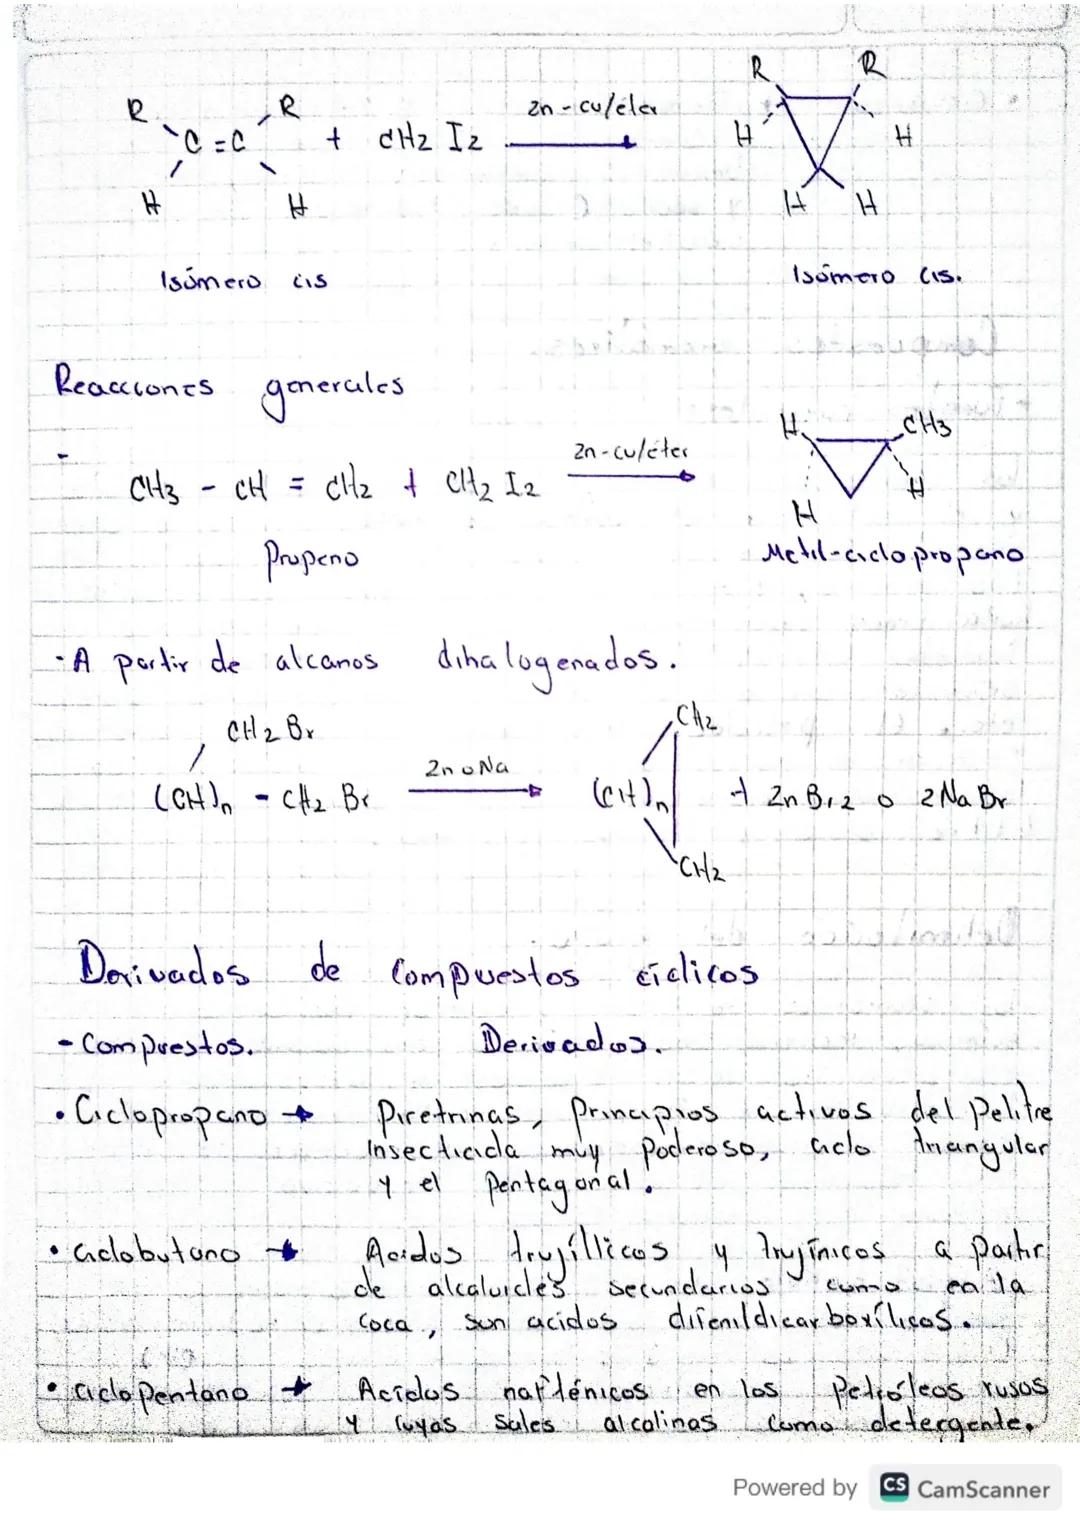 R R R R
C = C + CH2 I2 Zn-Cu/éter H H
H H H H
Isómero cis Isómero cis.
Reacciones generales
- CH3 - CH = CH2 + CH2 I2 Zn-Cu/éter H CH3 H H
Propeno Metil-ciclopropano
- A partir de alcanos dihalogenados.
CH2 Br CH2
(CH)n - CH2 Br Zn o Na (CH)n + Zn Br2 o 2 Na Br
CH2
Derivados de Compuestos cíclicos
- Compuestos. Derivados.
• Ciclopropano → Piretrinas, Principios activos del Pelitre
Insecticida muy Poderoso, ciclo triangular
y el Pentagonal.
• ciclobutano → Acidos trujíllicos y Trujínicos a partir
de alcaloides secundarios como en la
coca, son acidos difenildicarboxílicos.
• ciclo Pentano → Acidos nafténicos en los Petróleos rusos
y cuyas Sales alcalinas como detergente.
Powered by CS CamScanner